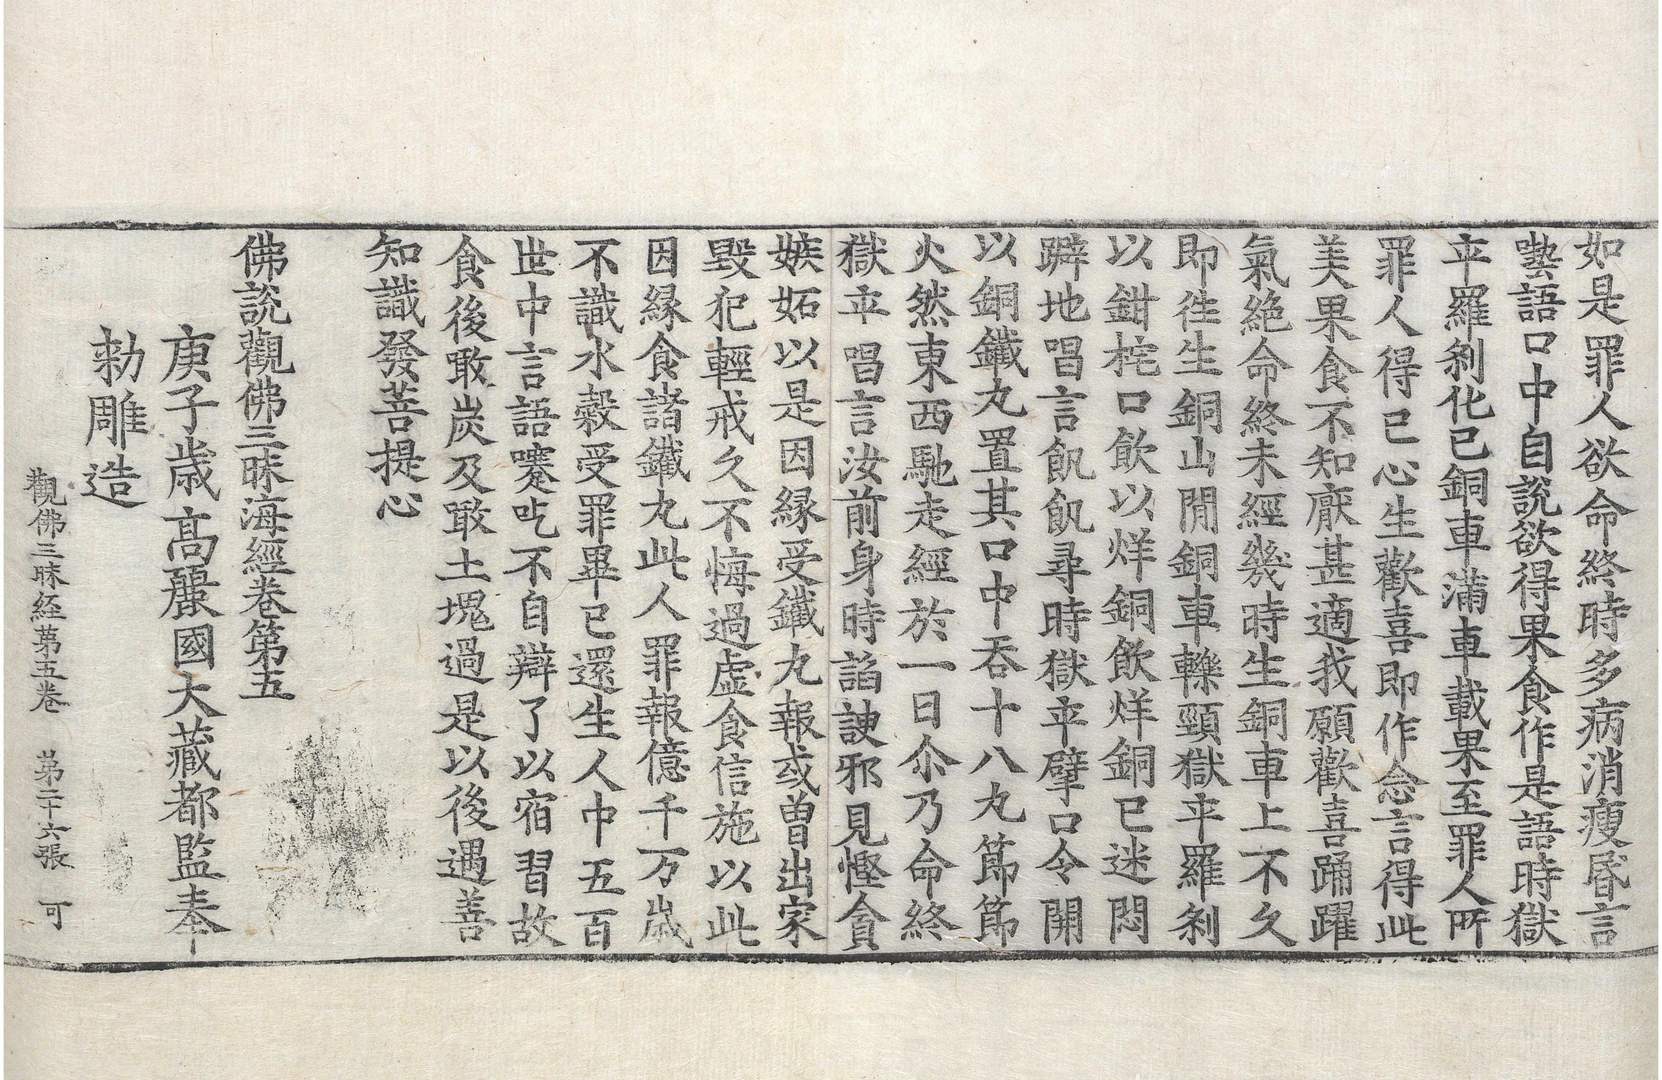 如是罪人欲命終時多病消瘦昬言
囈語口中自說欲得果食作是語時獄
卒羅剎化已銅車滿車載果至罪人所
罪人得已心生歡喜即作念言得此
美果食不知厭甚適我願歡喜踊躍
氣絶命終未經幾時生銅車上不久
即往生銅山閒銅車轢頸獄卒羅剎
以鉗柁口飲以烊銅飲烊銅已迷悶
躃地唱言飢飢尋時獄卒擘口令開
以銅鐵丸置其口中吞十八丸節節
火然東西馳走經於一日尒乃命終
獄卒唱言汝前身時諂諛邪見慳貪
嫉妬以是因緣受鐵丸報或曾出家
毀犯輕戒久不悔過虛食信施以此
因緣食諸鐵丸此人罪報億千万歲
不識水穀受罪畢已還生人中五百
世中言語謇吃不自辯了以宿習故
食後噉炭及噉土塊過是以後遇善
知識發菩提心
佛說觀佛三昧海經卷第五
庚子歲高麗國大藏都監奉
勅雕造
觀佛三昧経第五卷 第二十六張 可